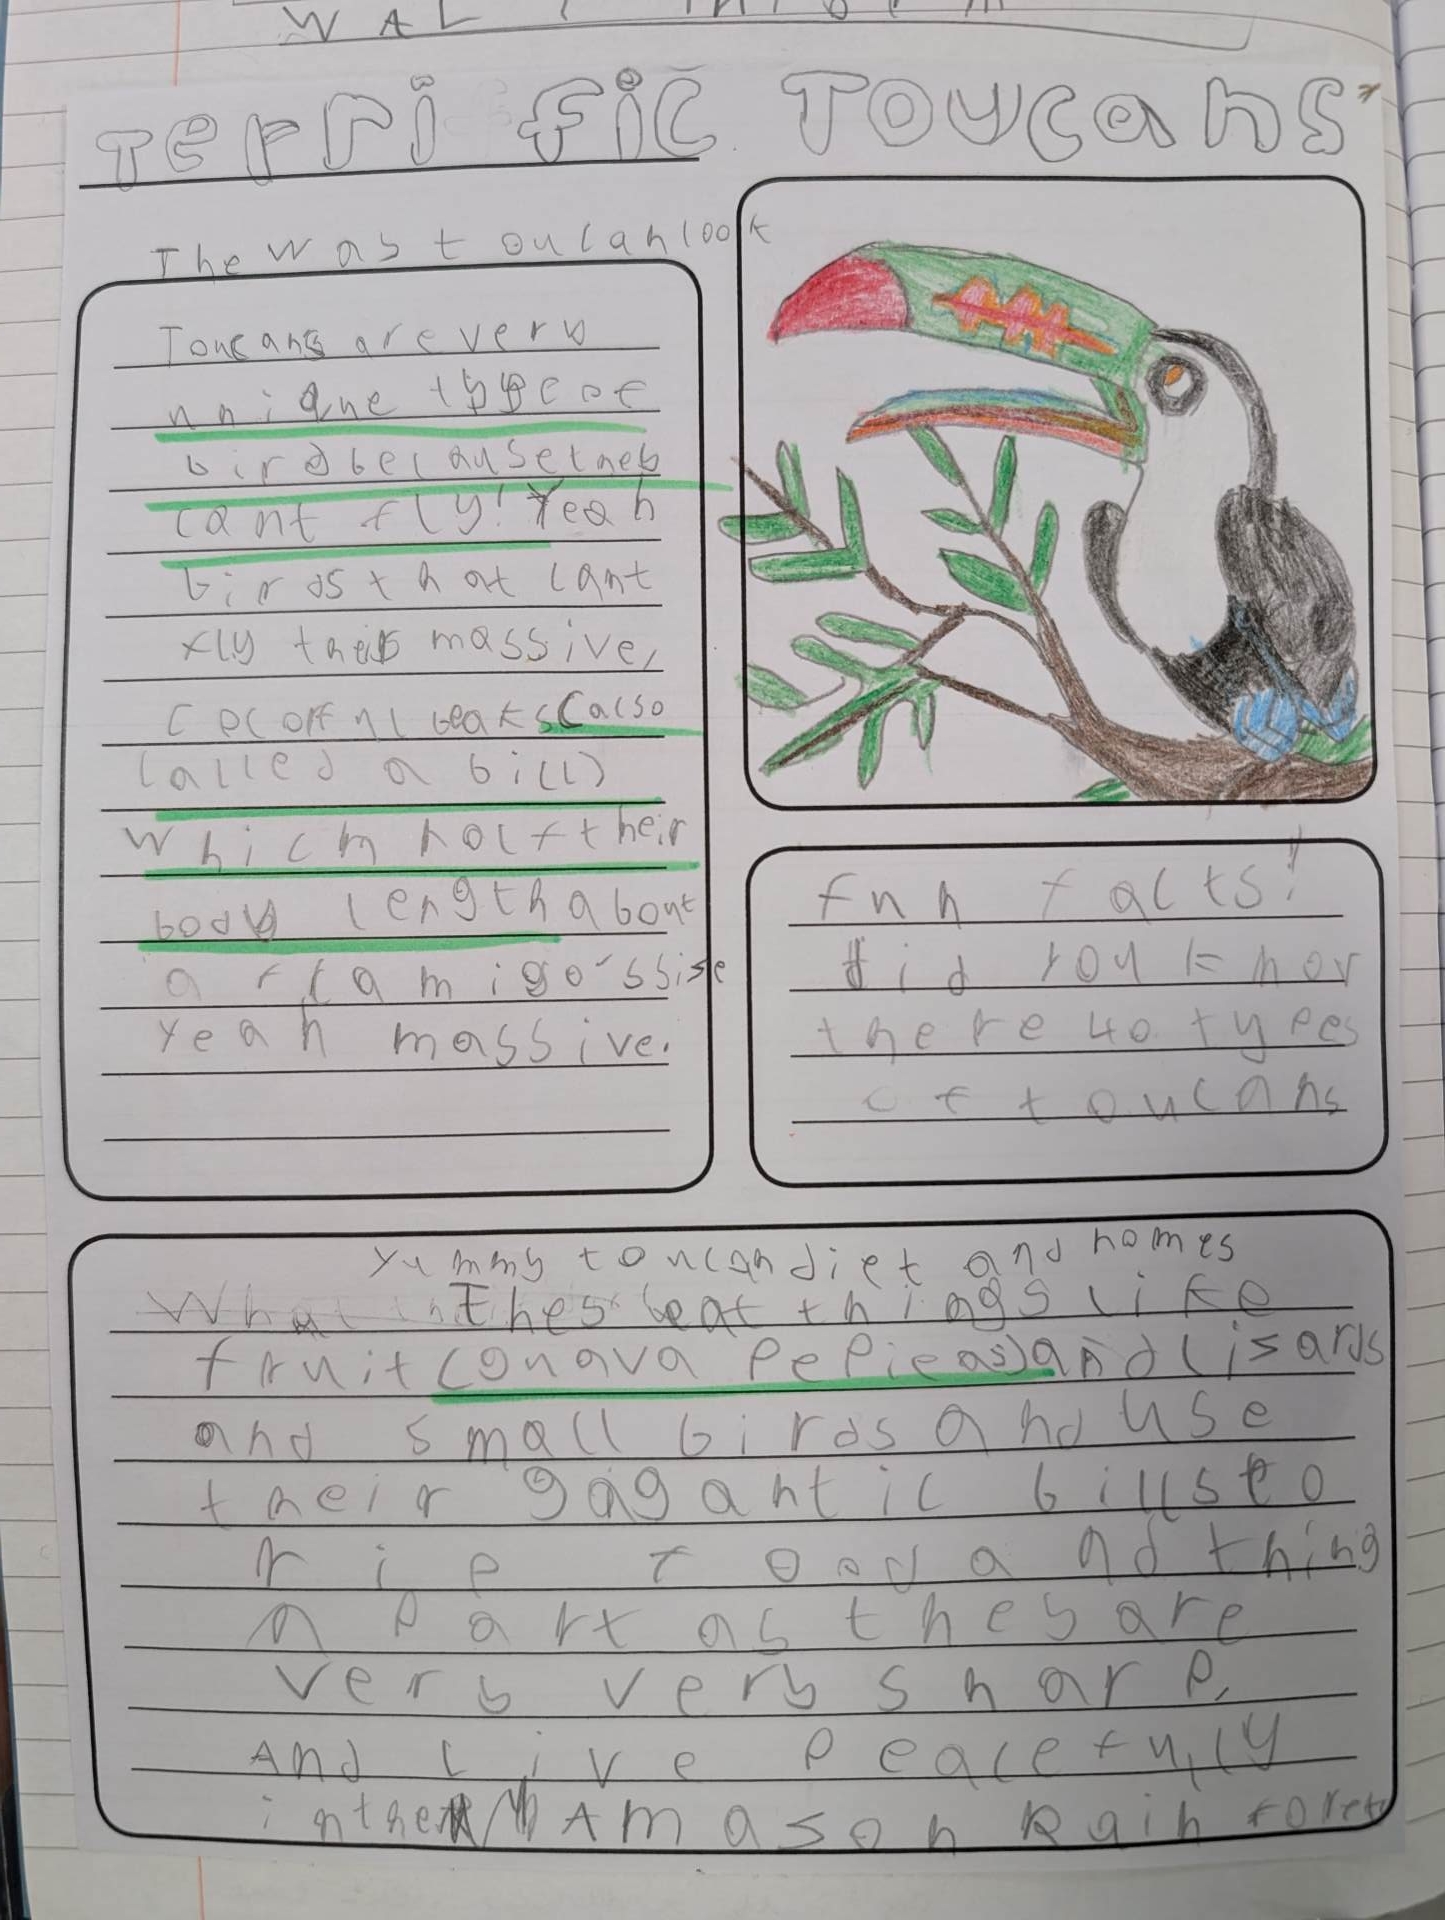 WAL
Terrific Toucans
The was toucan look
Toucans are very
unique type of
bird because they
cant fly! Yeah
birds that cant
fly their massive,
beaks (also
called a bill)
which half their
body length about
a flamigo's sise
yeah massive.
fun facts!
did you know
there 40 types
of toucans
Yummy toucan diet and homes
They eat things like
fruit (guava pepieas) and lisards
and small birds and use
their gagantic bills to
rip food and thing
apart as they are
very very sharp,
And live peacefully
in the Amason Rain foret